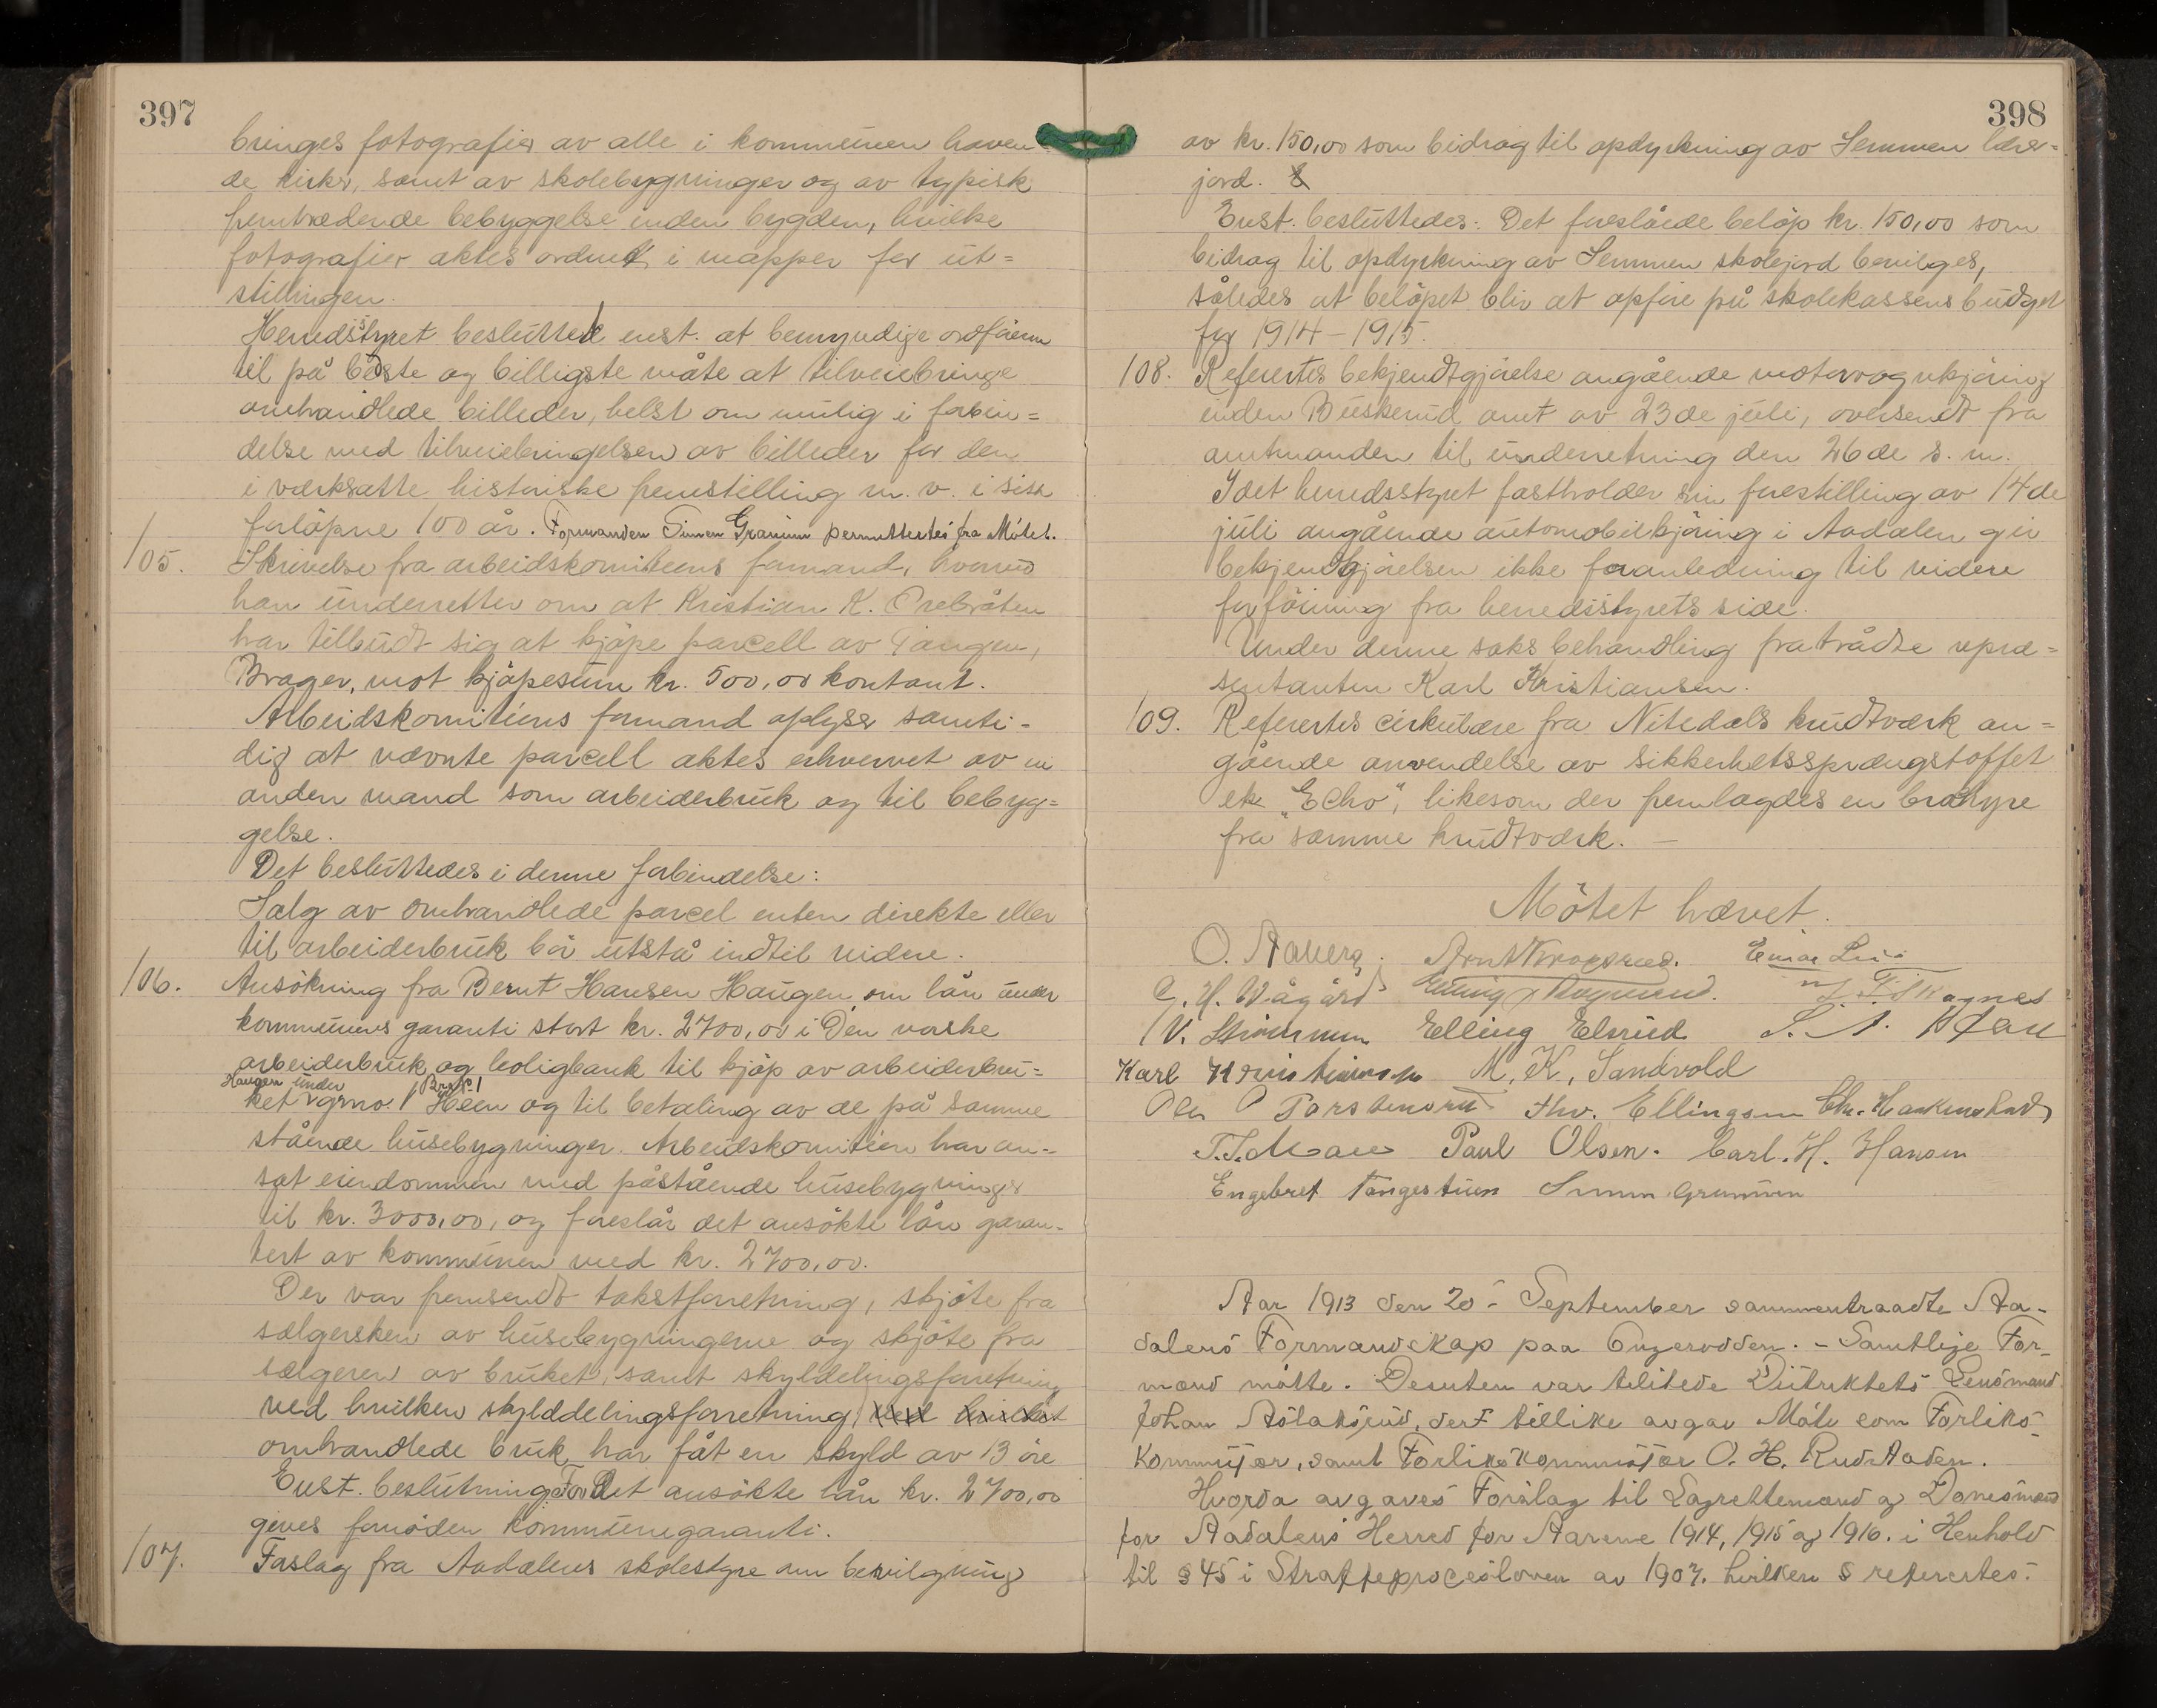 397
bringes fotografier av alle i kommunen haven-
de kirker, samt av skolebygninger og av typisk
fremtrædende bebyggelse inden bygden, hvilke
fotografier aktes ordnet i mapper for ut=
stillingen.
Herredsstyret besluttet enst. at bemyndige ordføreren
til på bedste og billigste måte at tilveiebringe
omhandlede billeder, helst om mulig i forbin=
delse med tilveiebringelsen av billeder for den
i værksatte historiske fremstilling m. v. i sisst
forløpne 100 år. Formanden Simen Granum permittertes fra Møtet.
105. Skrivelse fra arbeidskomiteens formand, hvorved
han underretter om at Kristian K. Orebråten
har tilbudt sig at kjøpe parcell av Tangen,
Brager, mot kjøpesum kr. 500,00 kontant.
Arbeidskomiteens formand oplyser samti-
dig at nævnte parcell aktes erhvervet av en
anden mand som arbeiderbruk og til bebyg=
gelse.
Det besluttedes i denne forbindelse:
Salg av omhandlede parcel enten direkte eller
til arbeiderbruk bør utstå indtil videre.
106. Ansøkning fra Bernt Hansen Haugen om lån under
kommunens garanti stort kr. 2700,00 i Den norske
arbeiderbruk og boligbank til kjøp av arbeiderbru=
Haugen under Brs. No. 1
ket grno. 1 Heen og til betaling av de på samme
stående husebygninger. Arbeidskomiteen har an-
sat eiendommen med påstående husebygninger
til kr. 3000,00, og foreslår det ansøkte lån garan-
tert av kommunen med kr. 2700,00.
Der var fremsendt takstforretning, skjøte fra
sælgersken av husebygningerne og skjøte fra
sælgeren av bruket, samt skylddelingsforretning
ved hvilken skylddelingsforretning, ved hvilket
omhandlede bruk har fåt en skyld av 13 øre
Enst. beslutning: For det ansøkte lån kr. 2700,00
gives fornøden kommunegaranti.
107. Forslag fra Aadalens skolestyre om bevilgning
398
av kr. 150,00 som bidrag til opdyrkning av Semmen lærer=
jord.
Enst. besluttedes: Det foreslåede beløp kr. 150,00 som
bidrag til opdyrkning av Semmen skolejord bevilges,
således at beløpet blir at opføre på skolekassens budget
for 1914-1915.
108. Refertes bekjendtgjørelse angående motorvognkjøring
inden Buskerud amt av 23de juli, oversendt fra
amtmanden til underretning den 26de s. m.
Idet herredsstyret fastholder sin forestilling av 14de
juli angående automobilkjøring i Aadalen gir
bekjendtgjørelsen ikke foranledning til videre
forføining fra herredsstyrets side.
Under denne saks behandling fratrådte repræ=
sentanten Karl Kristiansen.
109. Refertes cirkulære fra Nitedals krudtværk an=
gående anvendelse av sikkerhetssprængstoffet
ek "Echo", likesom der fremlagdes en brochyre
fra samme krudtværk. —
Møtet hævet.
O. Aaberg. Arnt Kroksrud. Einar Lia
E. H. Vågård
Skagnes
Elling Elsrud
Karl Kristiansen M. K. Sandvold
Ole Thv. Ellingsen
Paul Olsen. Carl. H. Hansen
Engebret Tangestuen Simen Granum
Aar 1913 den 20- September sammentraadte Aa-
dalens Formandskap paa Ongerodden. - Samtlige For-
mænd møtte. Desuten var tilstede Distriktets Lensmand
Johan Aslaksrud, der tillike avgav Møte som Forliks-
kommisær, samt Forlikskommisær O. H. Rudstaden.
Hvorda avgaves Forslag til Lagrettemænd og Domsmænd
for Aadalens Herred for Aarene 1914, 1915 og 1916. i Henhold
til § 45 i Straffeprocesloven av 1907. hvilken § refertes.